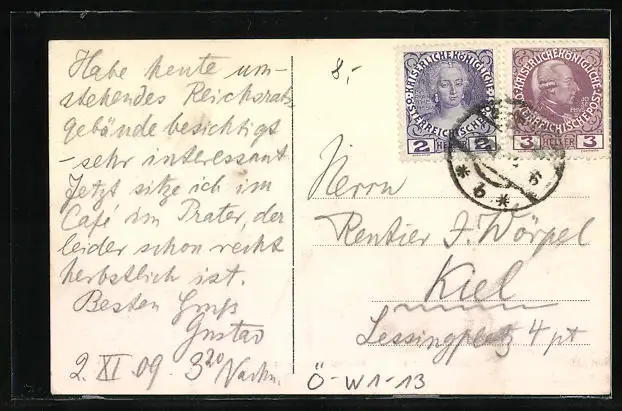 Habe heute um-
stehendes Reichsrats
gebäude besichtigt
- sehr interessant
Jetzt sitze ich im
Café im Prater, der
leider schon recht
herbstlich ist.
Besten Gruß
Gustav
2. XI. 09. 3 20 Nachm.
8,-
KAISERLICHE KÖNIGLICHE
ÖSTERREICHISCHE POST
2 HELLER 2
KAISERLICHE KÖNIGLICHE
ÖSTERREICHISCHE POST
3 HELLER 3
* b *
Herrn
Rentier J. Wörpel
Kiel
Lessingplatz 4 pt
Ö-W1-13